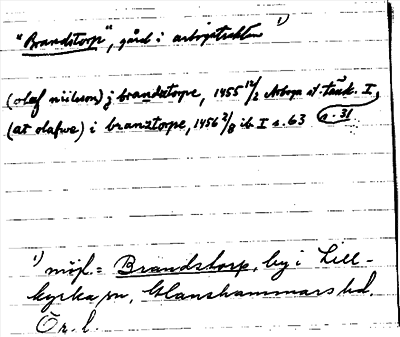 "Brandstorp", gård i arbogatrakten ¹)
(olaf niilsson) j brandztorpe, 1455 12/2 Arboga st. tänk. I, s. 31
(at olafwe) i branztorpe, 1456 2/8 ib I s. 63
¹) möjl. = Brandstorp, by i Lill-
kyrka sn, Glanshammars hd.
Ör. l.